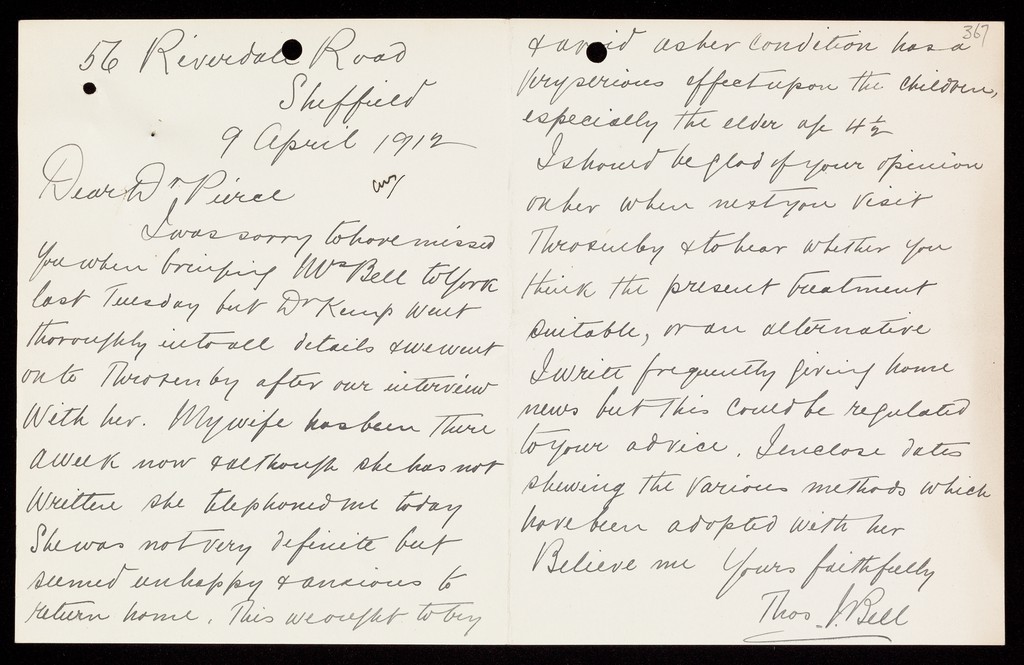 56 Riverdale Road
Sheffield
9 April 1912
Dear Dr Pierce
I was sorry to have missed
you when bringing Mrs Bell to York
last Tuesday but Dr Kemp went
thoroughly into all details & we went
on to Throxenby after our interview
with her. My wife has been there
a week now & although she has not
written she telephoned me today
She was not very definite but
seemed unhappy & anxious to
return home. This we ought to try
367
& avoid as her condition has a
very serious effect upon the children,
especially the elder age 4½
I should be glad of your opinion
on her when next you visit
Throxenby & to hear whether you
think the present treatment
suitable, or an alternative
I write frequently giving home
news but this could be regulated
to your advice. I enclose dates
shewing the various methods which
have been adopted with her
Believe me Yours faithfully
Thos. J. Bell